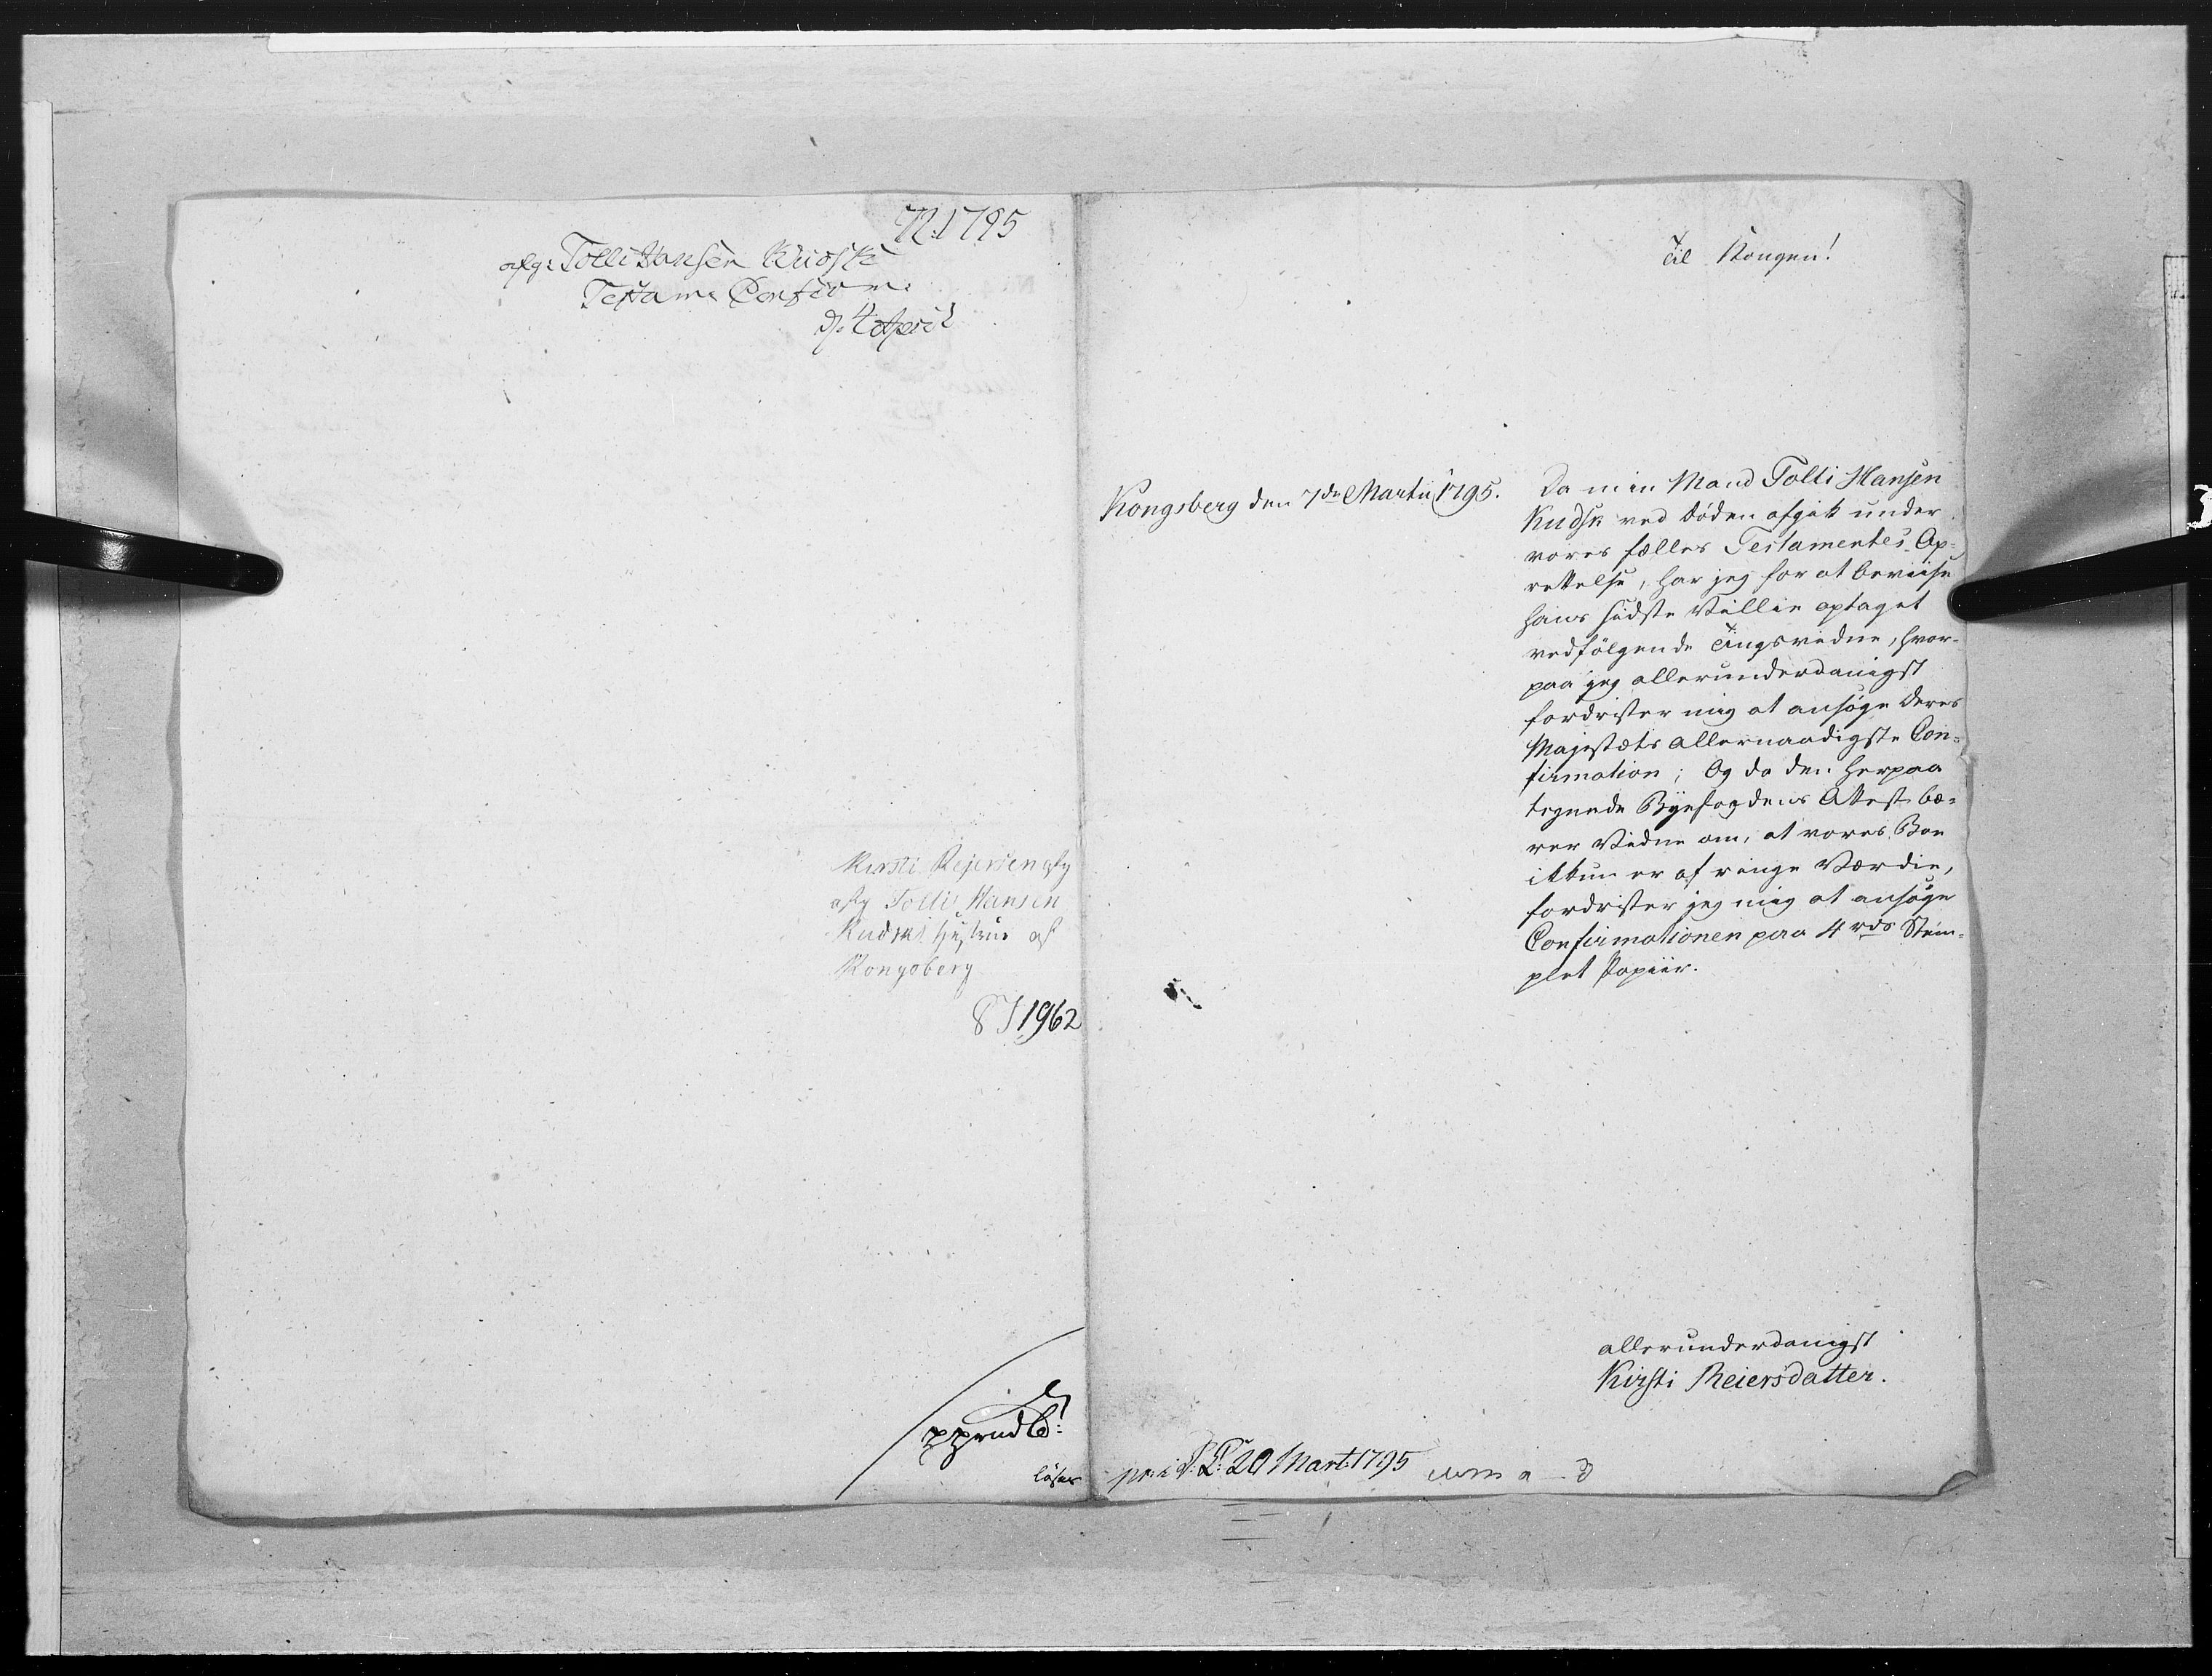 N. 1795
afg: Tolli Hansen Kudsk
Testam. Confirm.
d. 4 April
Kirsti Rejersen
afg Tolli Hansen
Kudsks Hustrue af
Kongsberg
1962
Til Kongen!
Kongsberg den 7de Martii 1795.
Da min Mand Tolli Hansen
Kudsk ved Døden afgik under
vores fælles Testamentes Op-
rettelse, har jeg for at beviise
hans sidste Villie optaget
vedfølgende Tingsvidne, hvor-
paa jeg allerunderdanigst
fordrister mig at ansøge Deres
Majestæts allernaadigste Con-
firmation; Og da den herpaa
tegnede Byefogdens Attest bæ-
rer Vidne om, at vores Boe
ikkun er af ringe Værdie,
fordrister jeg mig at ansøge
Confirmationen paa 4 rds Stem-
plet Papiir.
allerunderdanigst
Kirsti Reiersdatter.
20 Mart: 1795